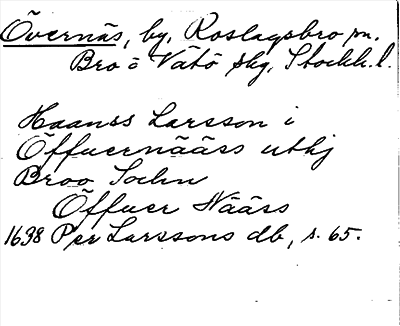 Övernäs, by, Roslagsbro sn.
Bro o Vätö skg, Stockh. l.
Haanss Larsson i
Öffuernääss uthj
Broo Sochn
Öffuer Nääss
1638 Per Larssons db, s. 65.